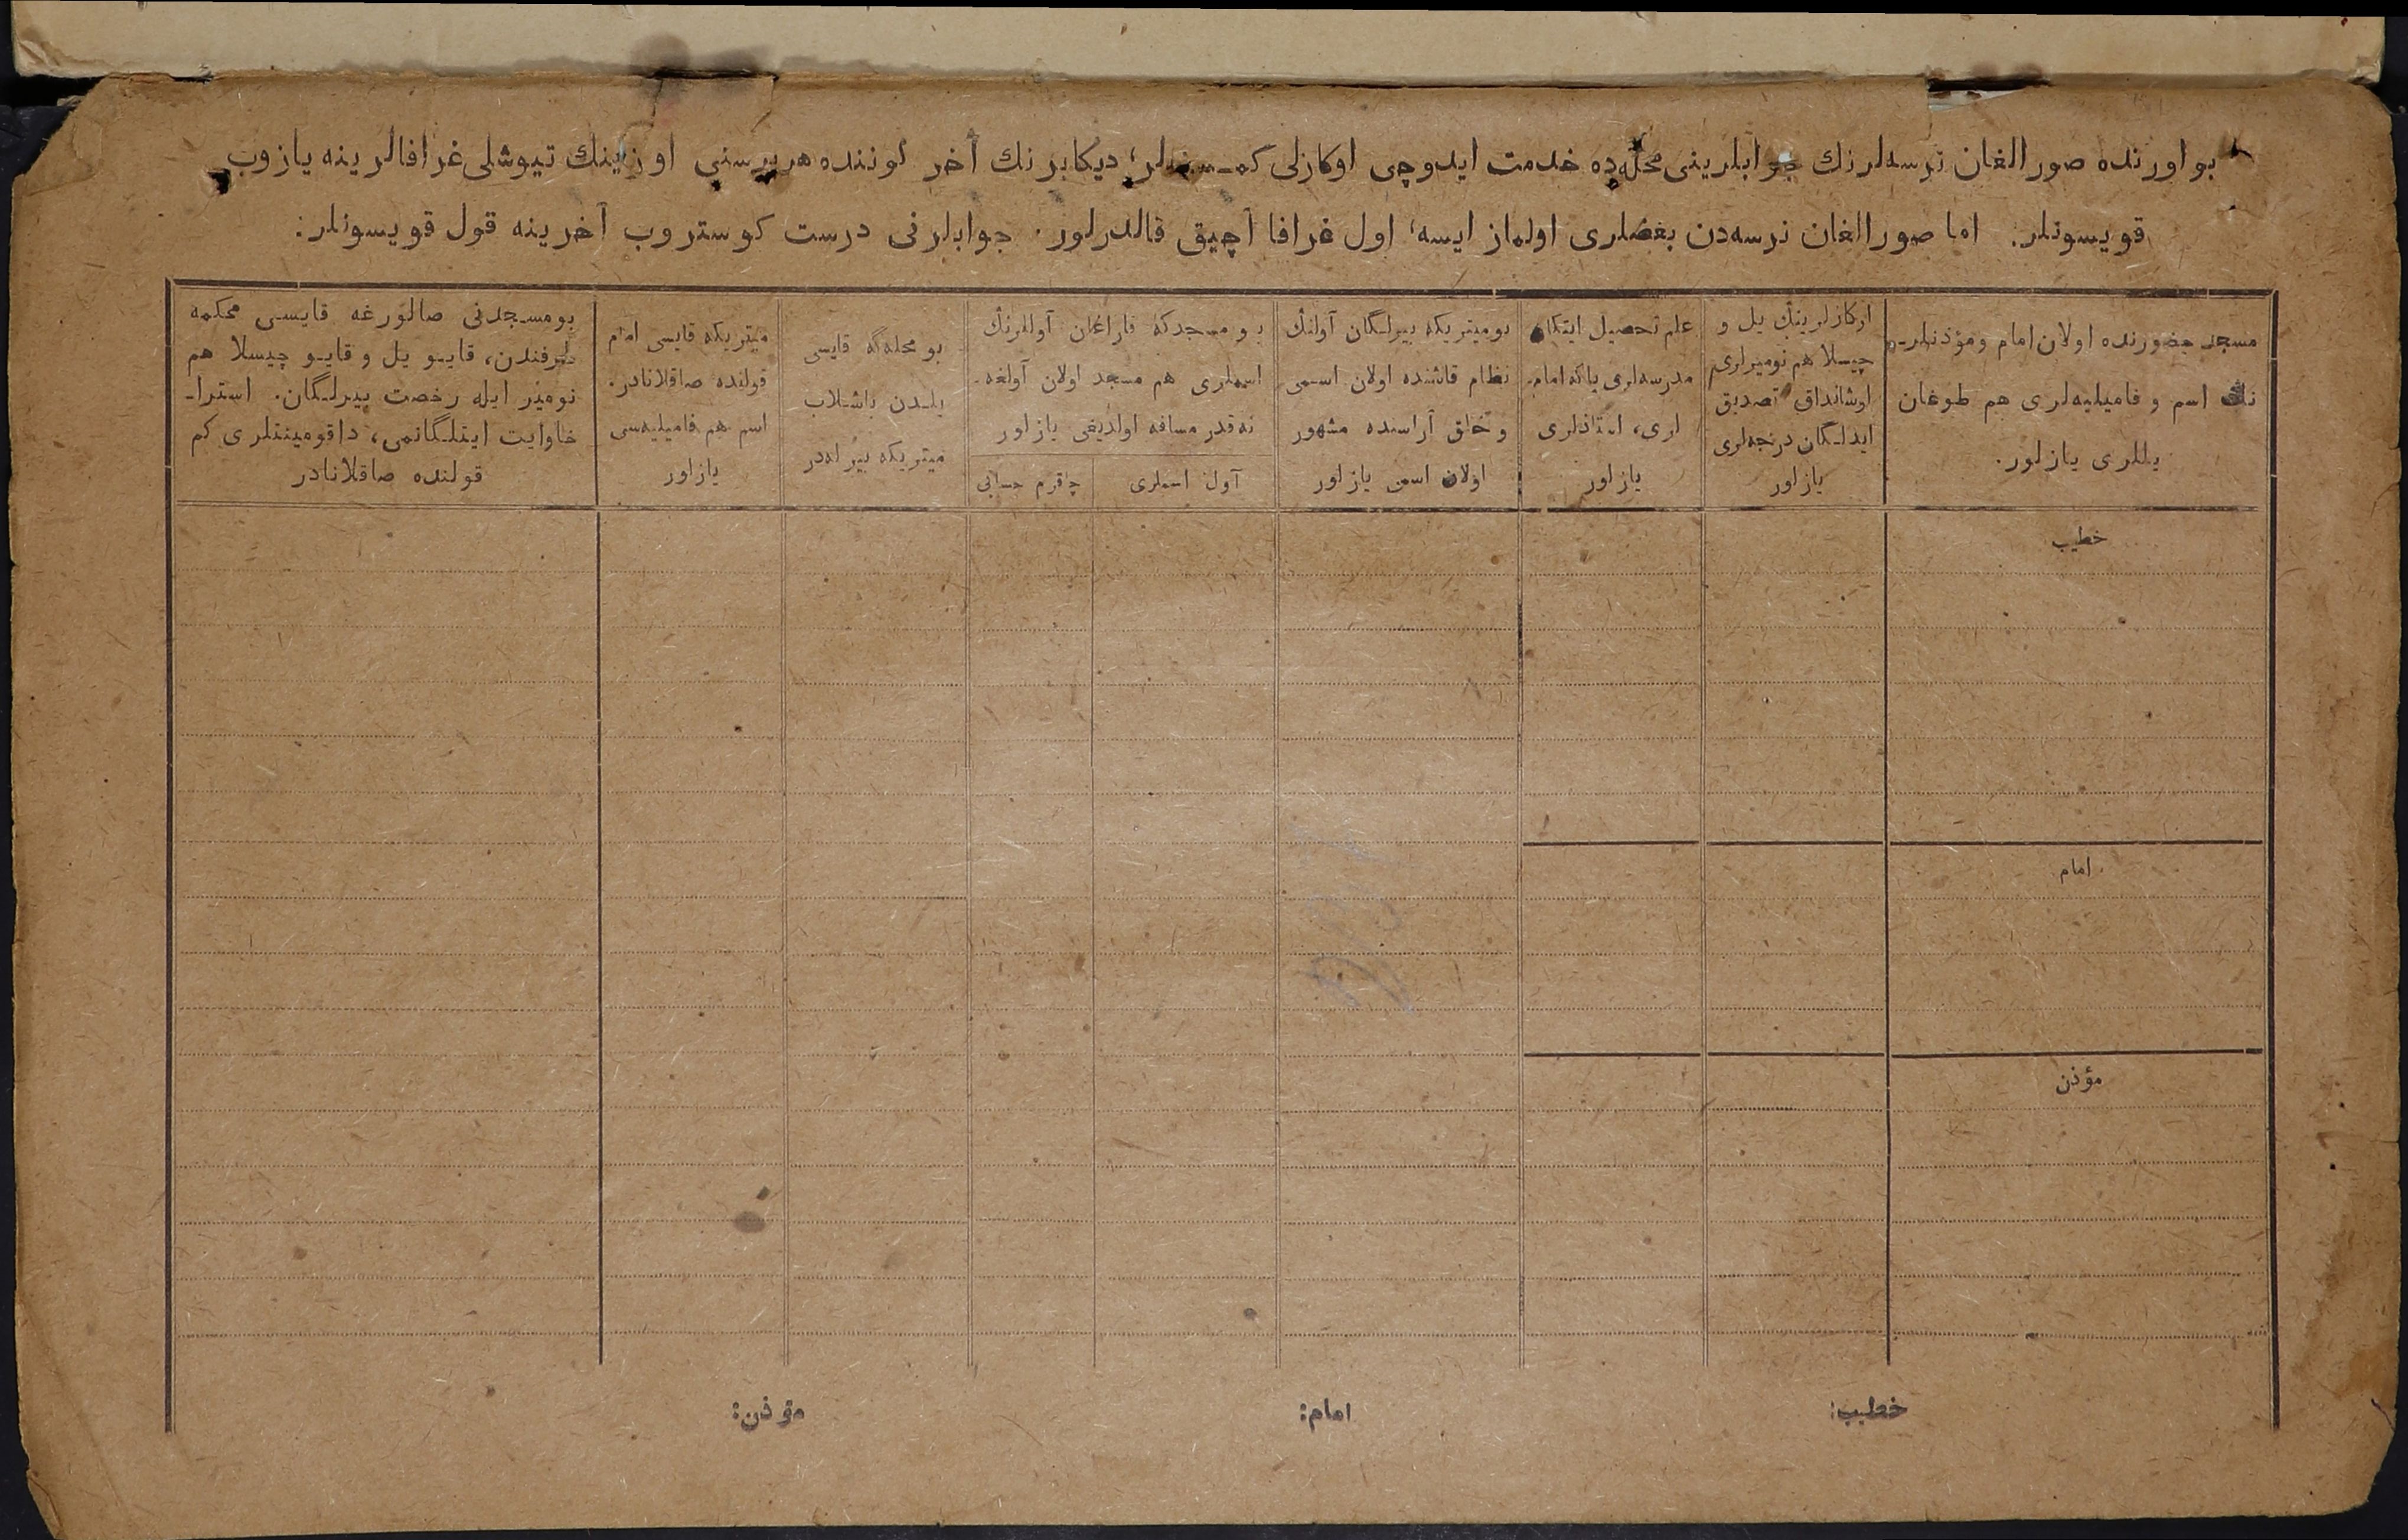 بو اورنده صورالغان نرسه‌لرنك جوابلرینی محله‌ده خدمت ایدوچی اوکازلی کمسنه‌لر؛ دیکابرنك آخر کوننده هر بیرسنی اوزینك تیوشلی غرافالرینه یازوب
قویسونلر. اما صورالغان نرسه‌دن بعضلری اولماز ایسه، اول غرافا آچیق قالدرلور. جوابلرنی درست کوستروب آخرینه قول قویسونلر:
مسجد حضورنده اولان امام ومؤذنلر-
نڭ اسم و فامیلیه‌لری هم طوغان
یللری یازلور.
اوکازلرینڭ یل و
چیسلا هم نومیرلری
اوشانداق تصدیق
ایدلـگان درجه‌لری
یازلور
علم تحصیل ایتکان
مدرسه‌لری یا که امام-
لری، استاذلری
یازلور
بومیتریکه بیرلـگان آولنڭ
نظام قاشنده اولان اسمی
و خلق آراسنده مشهور
اولان اسمی یازلور
بو مسجدکه قاراغان آوللرنڭ
اسملری هم مسجد اولان آولغه
نه قدر مسافه اولدیغی یازلور
آول اسملری
چاقرم حسابی
بو محله‌گه قایسی
یلـدن باشـلاب
میتریکه بیرله‌در
میتریکه قایسی امام
قولنده صاقلانادر.
اسم هم فامیلیه‌سی
یازلور
بومسـجدنی صالورغه قایسی محکمه
طرفندن، قایـو یل و قایـو چیسلا هم
نومیر ایله رخصت بیرلـگان. استرا-
خاوایت ایتلـگانمی، داقومینتلری کم
قولنده صاقلانادر
خطیب
امام
مؤذن
خطیب:
امام:
مؤذن: